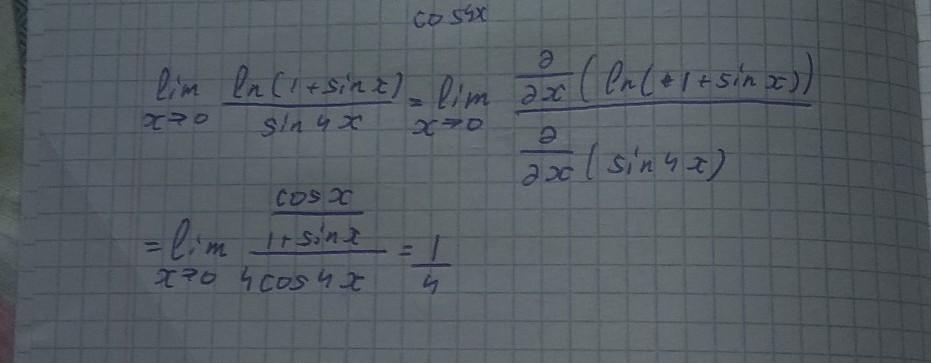 cos4x
lim x→0 ln(1+sin x)/sin 4x = lim x→0 ∂/∂x (ln(+1+sin x)) / ∂/∂x (sin 4x)
= lim x→0 (cos x/(1+sin x))/(4cos 4x) = 1/4